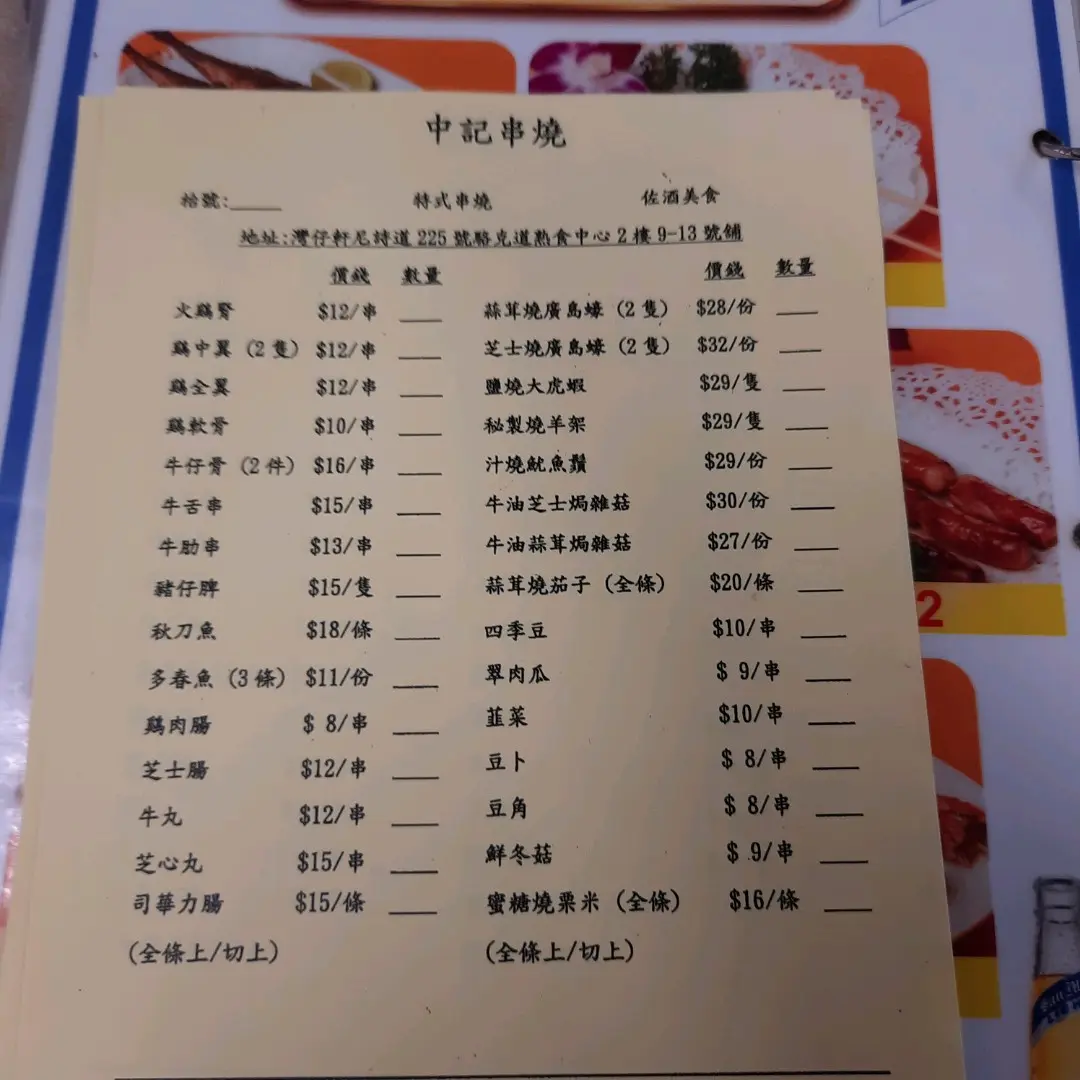 中記串燒
枱號:____ 特式串燒 佐酒美食
地址:灣仔軒尼詩道 225 號駱克道熟食中心 2 樓 9-13 號舖
價錢 數量 價錢 數量
火鷄腎 $12/串 ___ 蒜茸燒廣島蠔 (2 隻) $28/份 ___
鷄中翼 (2 隻) $12/串 ___ 芝士燒廣島蠔 (2 隻) $32/份 ___
鷄全翼 $12/串 ___ 鹽燒大虎蝦 $29/隻 ___
鷄軟骨 $10/串 ___ 秘製燒羊架 $29/隻 ___
牛仔骨 (2 件) $16/串 ___ 汁燒魷魚鬚 $29/份 ___
牛舌串 $15/串 ___ 牛油芝士焗雜菇 $30/份 ___
牛肋串 $13/串 ___ 牛油蒜茸焗雜菇 $27/份 ___
豬仔脾 $15/隻 ___ 蒜茸燒茄子 (全條) $20/條 ___
秋刀魚 $18/條 ___ 四季豆 $10/串 ___
多春魚 (3 條) $11/份 ___ 翠肉瓜 $ 9/串 ___
鷄肉腸 $ 8/串 ___ 韮菜 $10/串 ___
芝士腸 $12/串 ___ 豆卜 $ 8/串 ___
牛丸 $12/串 ___ 豆角 $ 8/串 ___
芝心丸 $15/串 ___ 鮮冬菇 $ 9/串 ___
司華力腸 $15/條 ___ 蜜糖燒粟米 (全條) $16/條 ___
(全條上/切上) (全條上/切上)
2